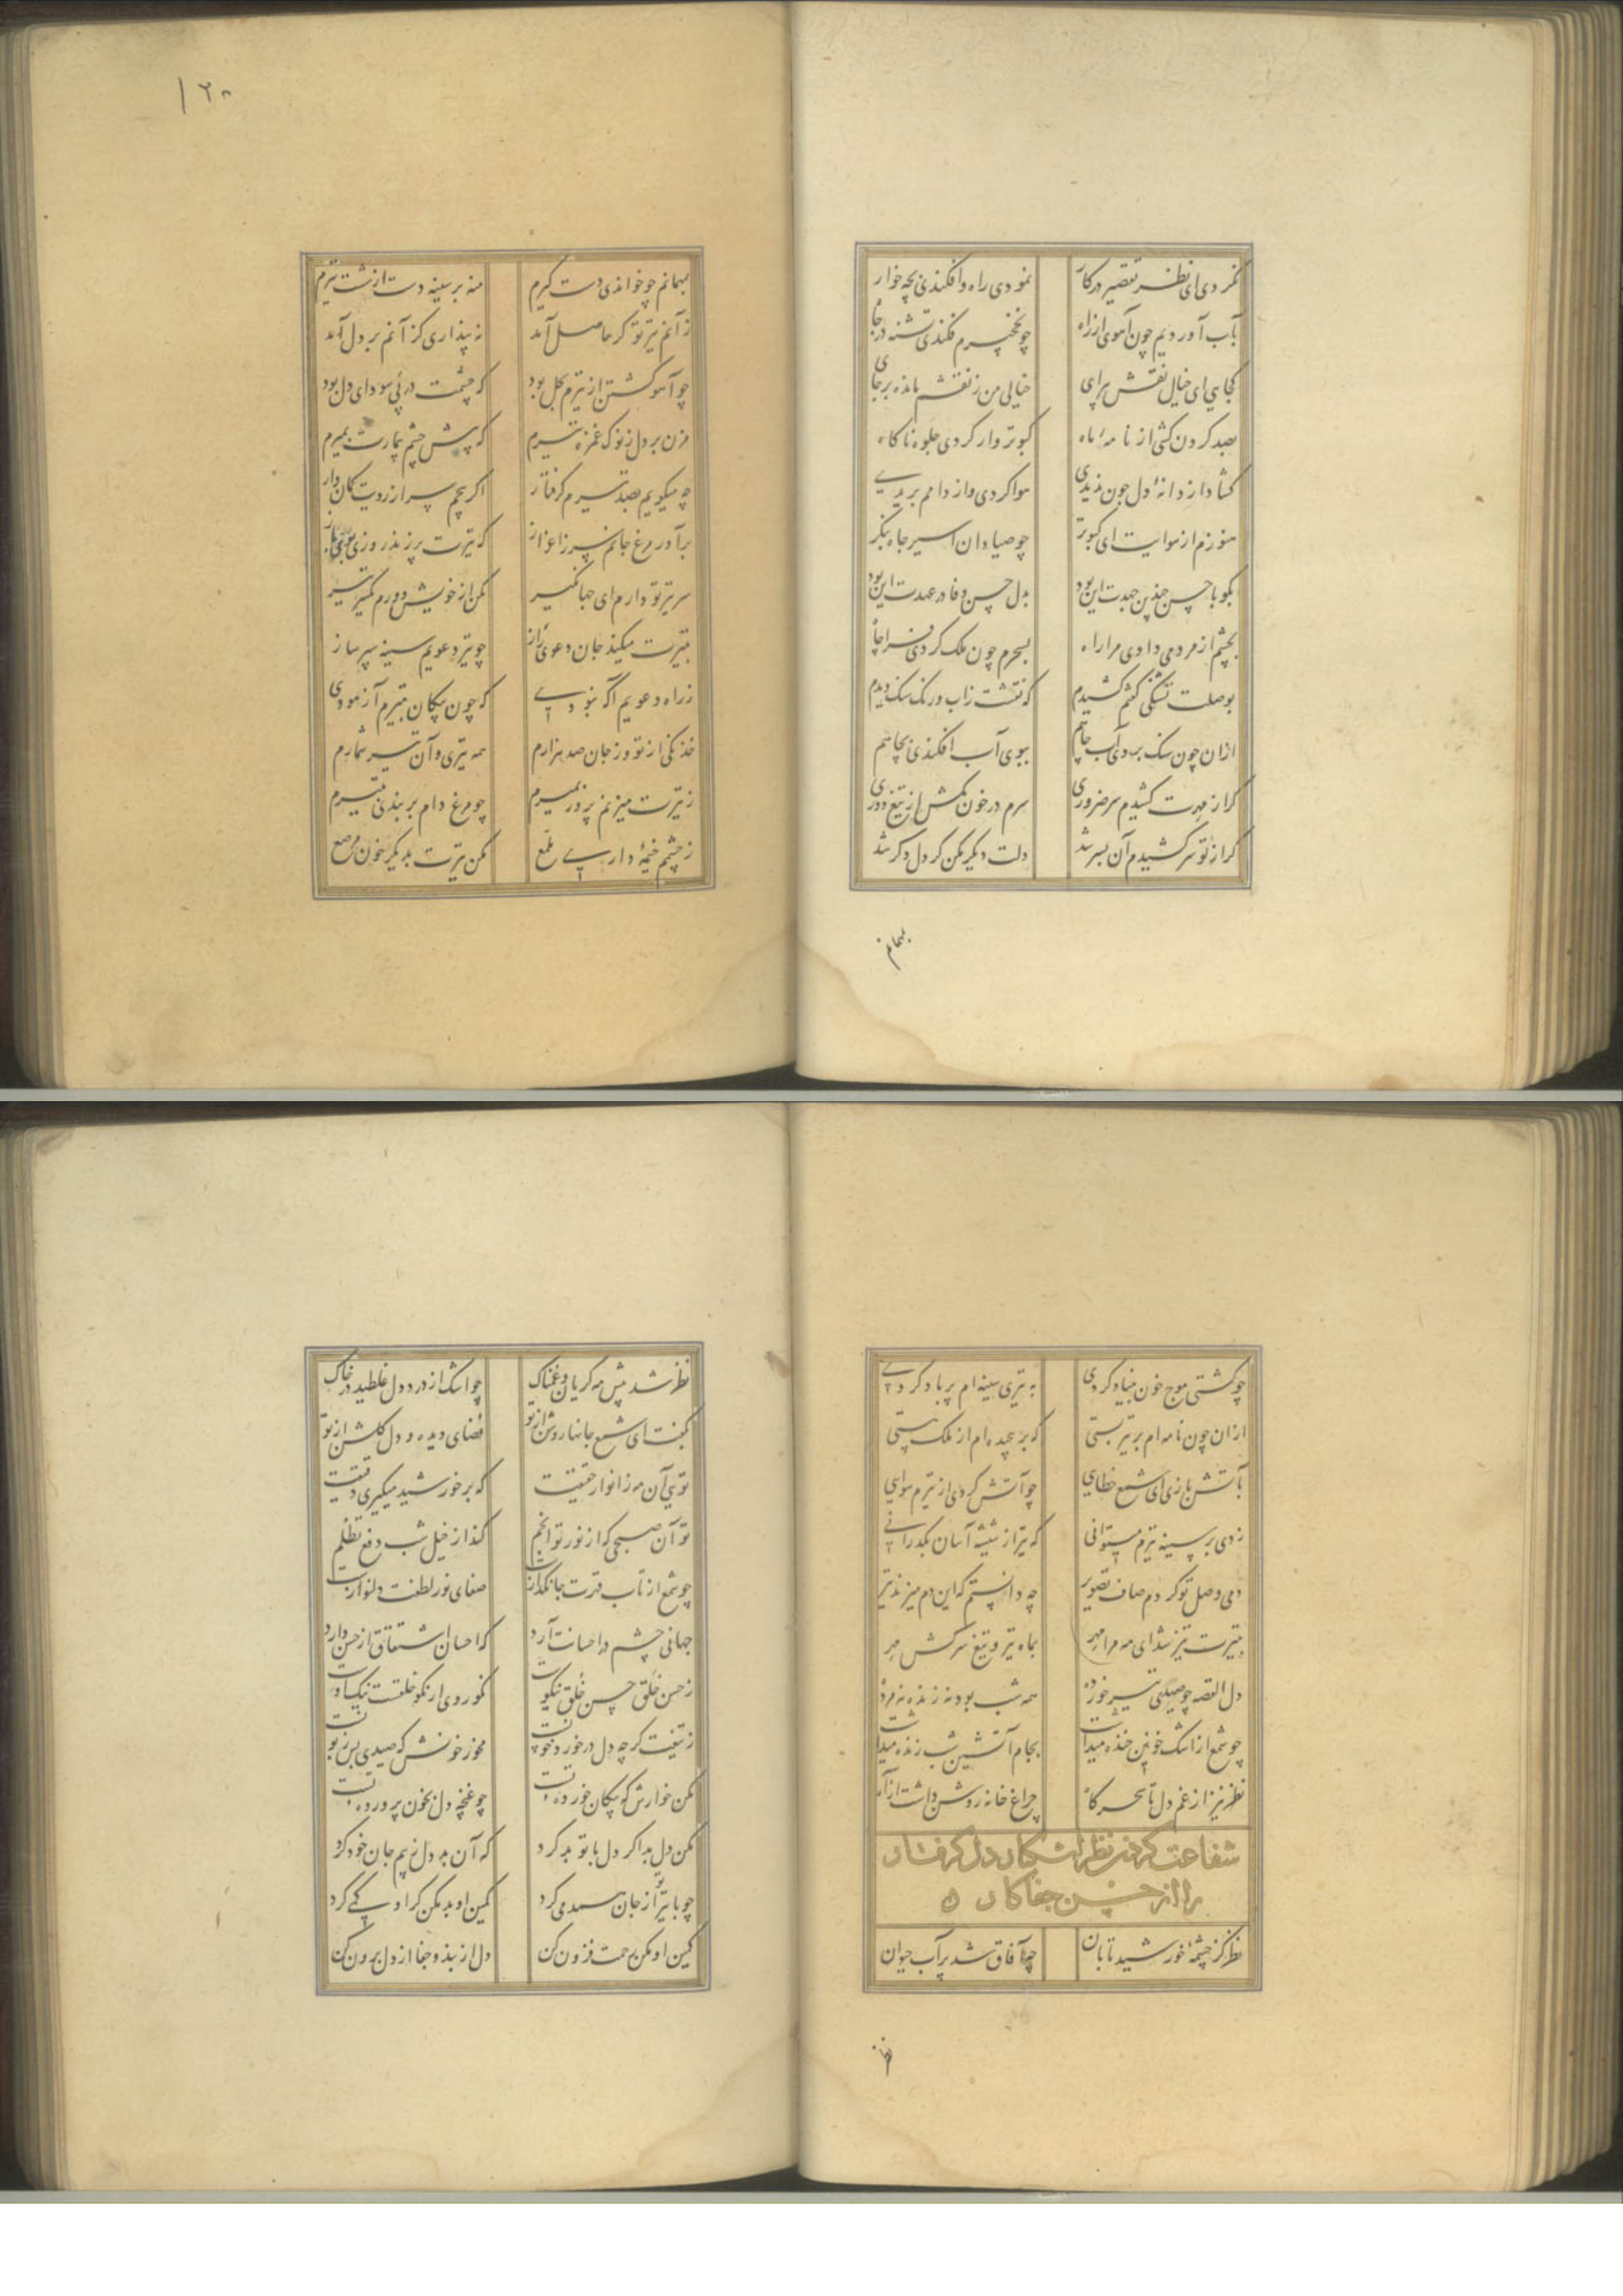 نکردی ای نظر تقصیر در کار نمودی راه و افکندی بچه خوار
بآب آوردیم چون آهوی از راه چو نخچیرم فکندی تشنه در چاه
کجایی ای خیال نقش پرای خیالی من ز نقشم مانده برجای
بصد کردن کشی از نامه ماه کبوتر وار کردی جلوه ناکاه
کشادا ز دانهٔ دل چون ندیدی هوا کردی و از دامم بریدی
هنوزم از هوایت ای کبوتر چو صیادان اسیر چاه بنکر
بگو با حسن چندین جهدت این بود بدل حسن وفا در عهدت این بود
بچشم از مردمی دادی مرا راه بسحرم چون ملک کردی فرا چاه
بوصلت تشنگی کفتم کشیدم که نقشت ز آب و رنک سنک دیدم
ازان چون سنک بردی آب جاهم ببوی آب افکندی بچاهم
کر از مهرت کشیدم سر ضروری سرم در خون مکش از تیغ دوری
کر از تو سر کشیدم آن بسر شد دلت دیگر مکن کر دل دکر شد
بمهمانم
۱۲۰
بمهمانم چو خواندی دست کیرم منه بر سینه دست از شست تیرم
ز آنم تیر تو کر حاصل آمد نه پنداری کز آنم بر دل آمد
چو آهو کشتن از تیرم بحل بود که چشمت در پی سودای دل بود
مزن بر دل ز نوک غمزه تیرم که پیش چشم بیمارت بمیرم
چه میکویم بصد تیرم کرفتار اکر پیچم سر از رویت کمان وار
برآور مرغ جانم سر ز اعزاز که تیرت پر زند روزی
سر تیر تو دارم ای جهانکیر مکن از خویش دورم کمتر تیر
بتیرت میکند جان دعوی راز چو تیر دعویم سینه سپر ساز
ز راه دعویم آکه نبودی که چون پیکان بتیرم آزمودی
خدنکی از تو وز جان صد هزارم همه تیری و آن تیر شمارم
ز تیرت میزنم پر ور نمیرم چو مرغ دام بر بندی بتیرم
ز چشم خیمهٔ داری ملمع مکن تیرت بدیکر خون مرصع
چو کشتی موج خون بنیاد کردی به تیری سینه ام پر باد کردی
ازان چون نامه ام بر تیر بستی که بر بجهد ام از ملک هستی
بآتش بازی ای شمع خطایی چو آتش کردی از تیرم هوایی
زدی بر سینه تیرم میتوانی که تیر از شیشه آسان بکذرانی
دمی وصل تو کردم صاف تصویر چه دانستم که این دم میزند تیر
بتیرت تیز شد ای مه مرا مهر بماه تیر و تیغ سرکش مهر
دل القصه چو صید تیر خورده همه شب بود نه زنده نه مرده
چو شمع از اشک خونین خنده میداشت بجام آتشین شب زنده میداشت
نظر نیز از غم دل تا سحر کاه چراغ خانه روشن داشت از آه
شفاعت کردن نظر اشکبار دل کرفتار
را از حسن جفا کار ه
نظر کز چشمهٔ خورشید تابان چه آفاق شد پر آب حیوان
نظر
نظر شد پیش مه کریان و غمناک چو اشک از درد دل غلطید در خاک
بکفت ای شمع جانها روشن از تو فضای دیده و دل کلشن از تو
تویی آن مه ز انوار حقیقت که بر خورشید میکیری دقیقت
تو آن صبحی که از نور تو انجم کند از خیل شب دفع تظلم
چو شمع از تاب قهرت جانکدازست صفای نور لطفت دلنوازست
جهانی چشم در احسانت آرد که احسان اشتقاق از حسن دارد
ز حسن خلق حسن خلق نیکوست نکو روی ار نکو خلقست نیک اوست
ز تیغت کرچه دل در خورد خونست مخور خونش که صیدی بس زبونست
مکن خوارش که پیکان خورده تست چو غنچه دل بخون پرورده تست
مکن دل بد اکر دل با تو بد کرد که آن بد دل ز بیم جان خود کرد
چو با تیرت از جان همدمی کرد کمین او بد مکن کر او کی کرد
کمین او مکن رحمت فزون کن دل از بند و جفا از دل برون کن